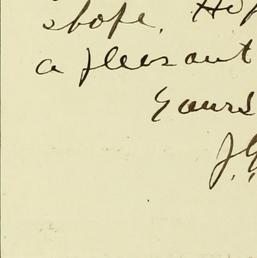 shope. Hop
a pleasant
Yours
J.